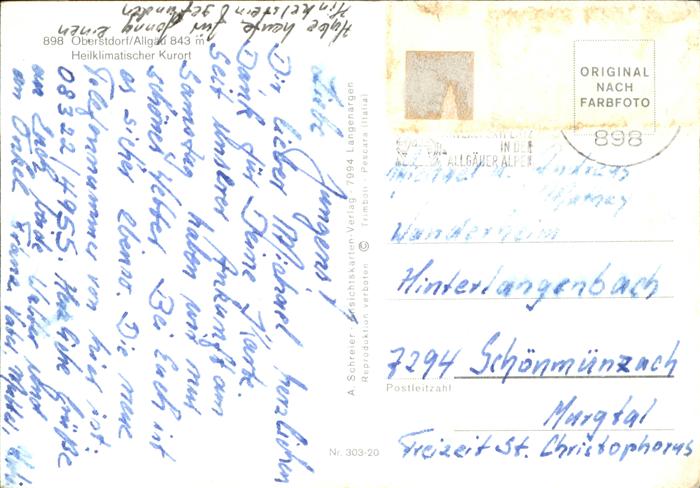 898 Oberstdorf/Allgäu 843 m
Heilklimatischer Kurort
Habe heute für Jonny einen
Hinkelstein gefunden
Liebe Jungens!
Dir lieber Michael herzlichen
Dank für Deine Karte.
Seit unserer Ankunft am
Samstag haben wir nur
schönes Wetter. Bei Euch ist
es sicher ebenso. Die neue
Telefonnummer von hier ist:
08322/4955. Herzliche Grüße
am
am Onkel Vater, Mutter,
A. Schreier · Ansichtskarten-Verlag · 7994 Langenargen
Reproduktion verboten © Trimboli - Pescara (Italia)
ORIGINAL
NACH
FARBFOTO
898
IN DEN
ALLGÄUER ALPEN
Michael u. Andreas
Wanderheim
Hinterlangenbach
7294 Schönmünzach
Postleitzahl
Murgtal
Freizeit St. Christophorus
Nr. 303-20